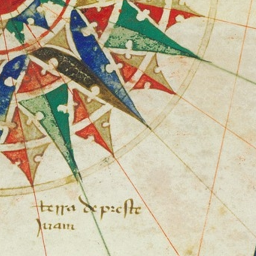 terra de preste
juam